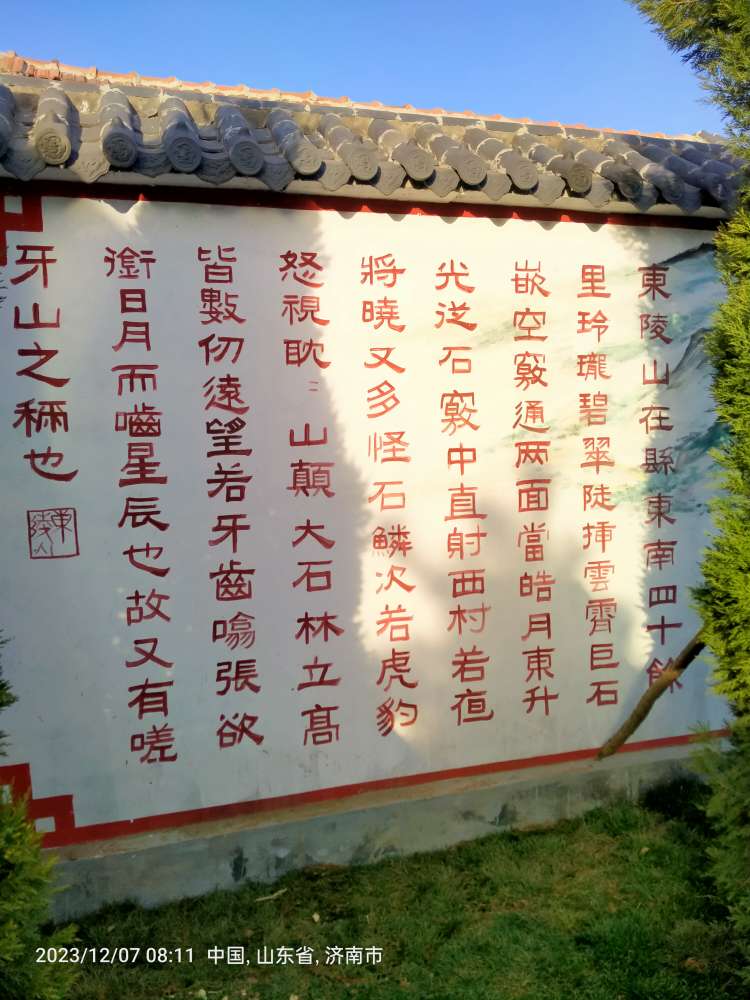 東陵山在縣東南四十餘
里玲瓏碧翠陡挿雲霄巨石
嵌空竅通两面當皓月東升
光从石竅中直射西村若夜
將曉又多怪石鱗次若虎豹
怒視眈〻山顛大石林立高
皆數仞遠望若牙齒噏張欲
銜日月而嚙星辰也故又有嗟
牙山之稱也
東陵山
2023/12/07 08:11 中国, 山东省, 济南市